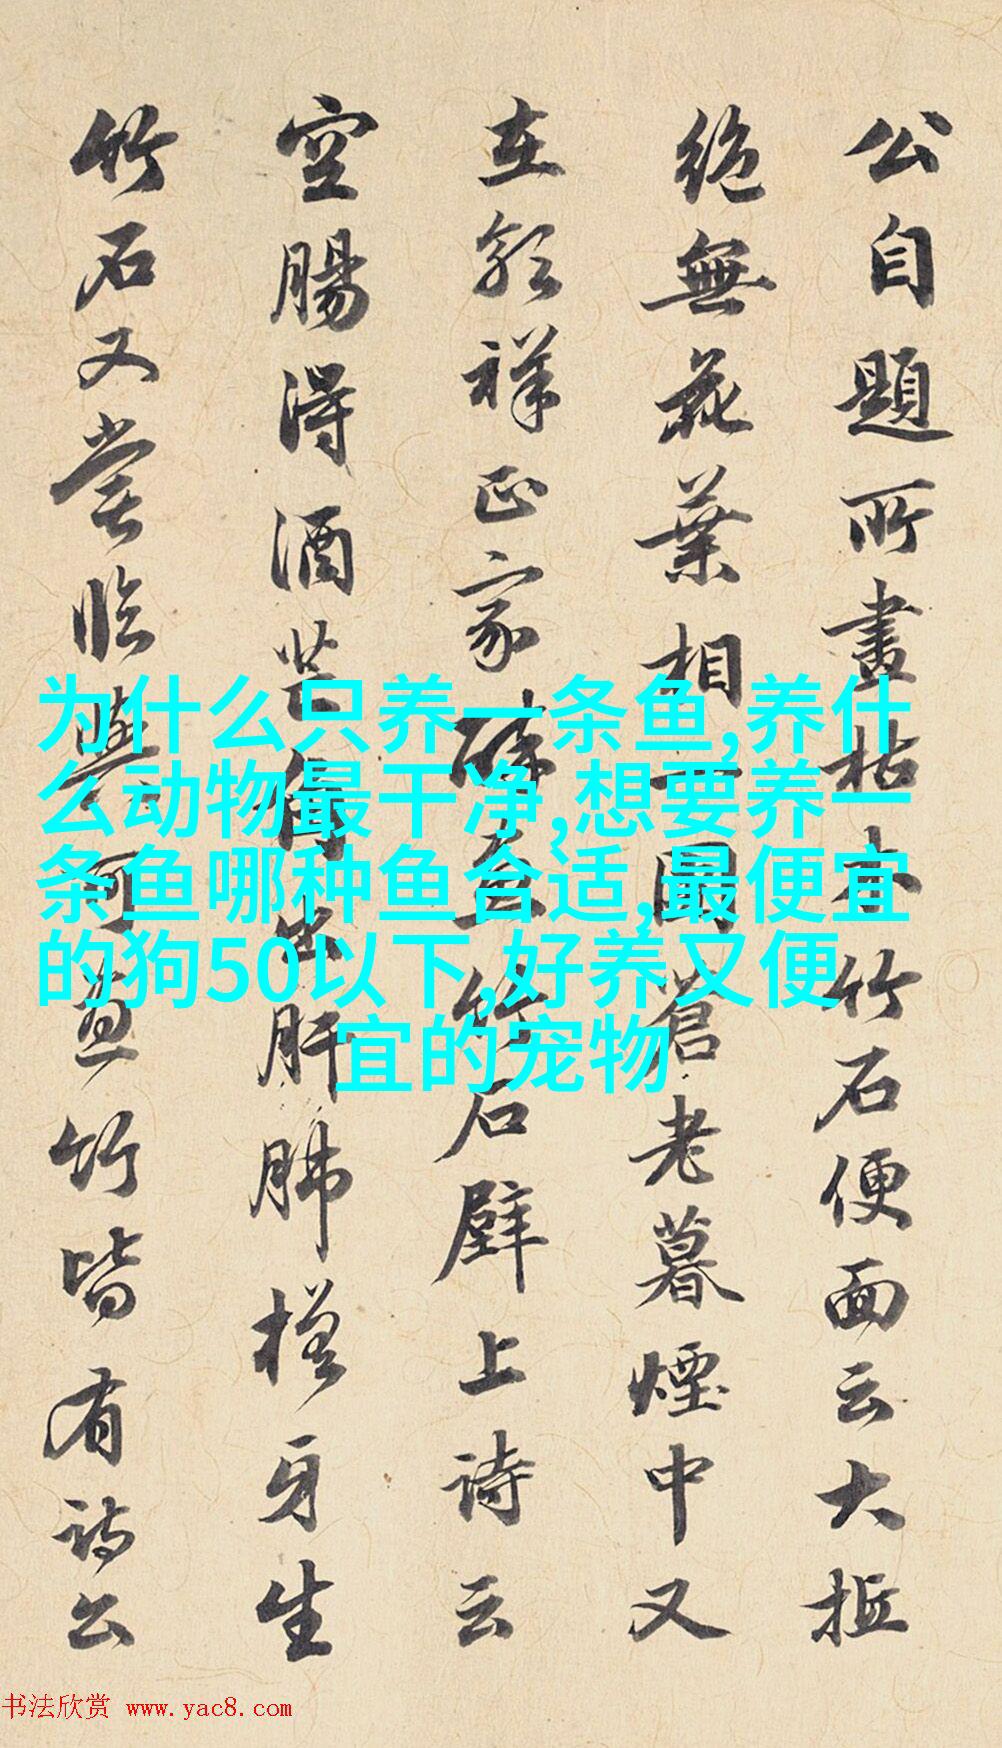 公自題所畫枯木竹石便面云大抵
絶無花葉相一圍蒼老暮煙中又
在郭祥正家醉畫竹石壁上詩云
空腸得酒芒角出肝肺槎牙生
竹石又嘗臨與可畫竹皆有詩公
为什么只养一条鱼,养什
么动物最干净,想要养一
条鱼哪种鱼合适,最便宜
的狗50以下,好养又便
宜的宠物
书法欣赏 www.yac8.com